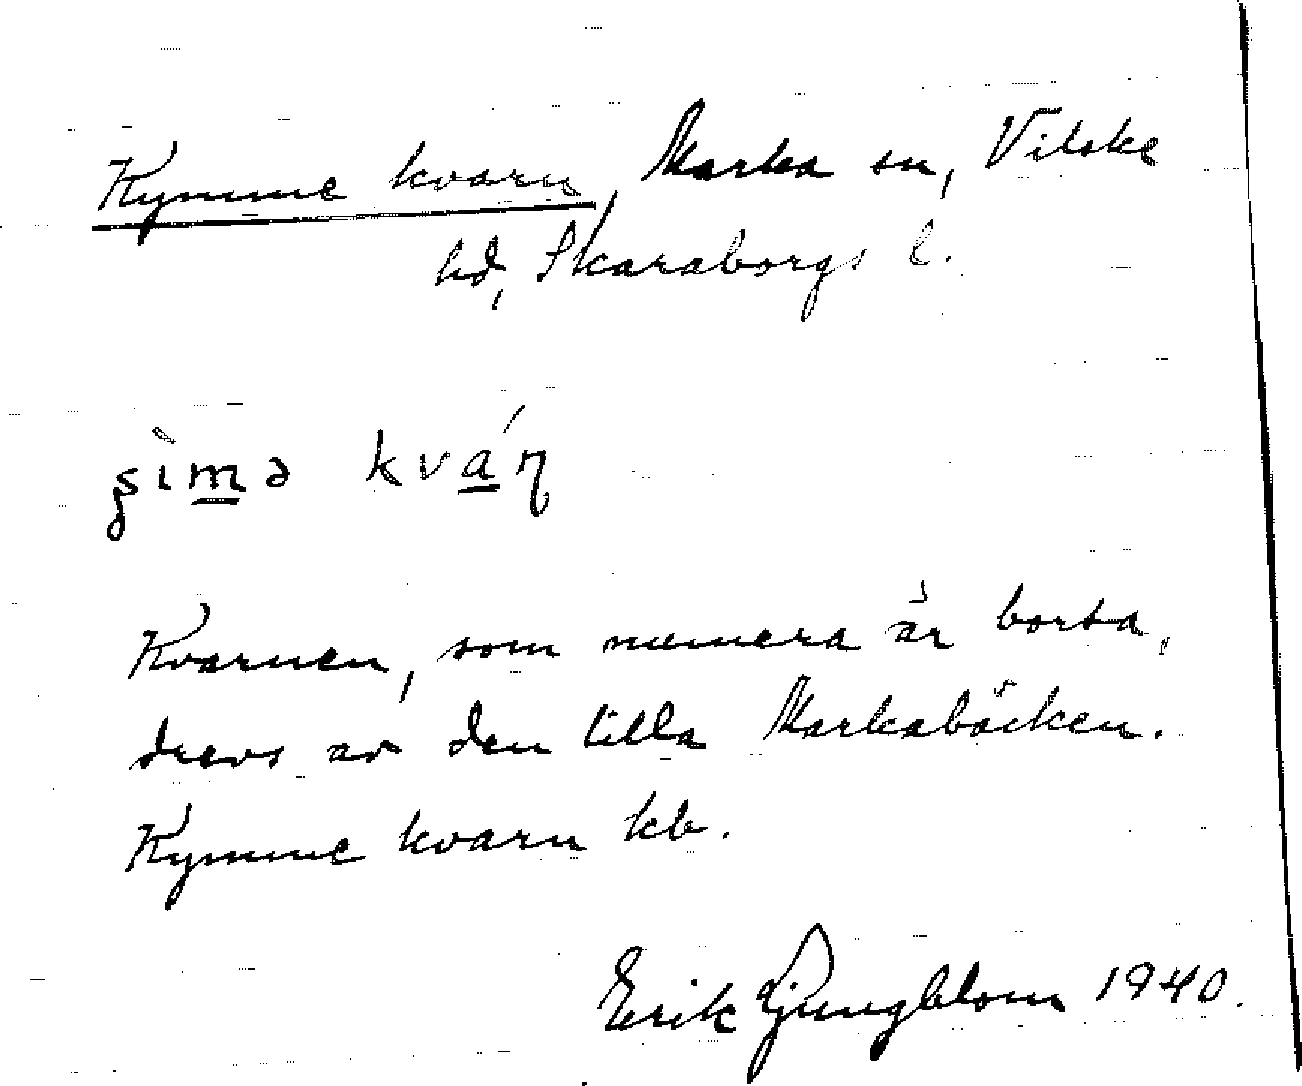 Kymme kvarn, Marka sn, Vilske
hd, Skaraborgs l.
kvá
Kvarnen, som numera är borta,
drevs av den lilla Markabäcken.
Kymme kvarn kb.
Erik Ljungblom 1940.